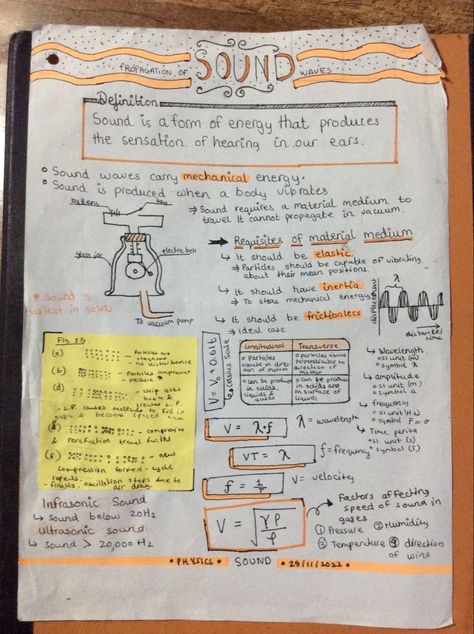 PROPAGATION OF SOUND WAVES
Definition
Sound is a form of energy that produces
the sensation of hearing in our ears.
Sound waves carry mechanical energy.
Sound is produced when a body vibrates
battery
key
glass jar
electric bell
To vacuum pump
* Sound is
in solids
⇒ Sound requires a material medium to
travel It cannot propagate in vacuum.
→ Requisites of material medium
↳ It should be elastic
⇒ Particles should be capable of vibrating
about their mean positions.
↳ It should have inertia
⇒ To store mechanical energy
↳ It should be frictionless
⇒ ideal case.
displacement
λ
distance/
time
↳ Wavelength
↳ SI unit (m)
↳ symbol λ
↳ amplitude
↳ SI unit (m)
↳ symbol a
↳ frequency
↳ SI unit Hz
↳ symbol f or
↳ Time period
↳ SI unit (s)
↳ symbol (T)
Fig 5.5
(a) Particles are
no disturbance
(b) Particles compressed
(d)
L.P. causes molecules to fill in
& becomes
(e) compression &
rarefaction travel forth
(f) new
compression formed - cycle
repeats.
- finally, oscillation stops due to
air drag.
V = V₀ + 0.61t
Celsius Scale
Longitudinal
Transverse
Particles
vibrate in direction
of motion
particles vibrate
perpendicular to
direction of
motion
can be
produced
in solids,
liquids &
gases
can be
produced
in solids and
on surface of
liquids
V = λ·f
λ = wavelength
VT = λ
f = frequency
f = 1/T
V = velocity
V = √(γP/ρ)
Factors affecting
speed of sound in
gases
① Pressure ② Humidity
③ Temperature ④ direction
of wind
Infrasonic Sound
↳ sound below 20Hz
Ultrasonic sound
↳ sound > 20,000 Hz
• PHYSICS • SOUND • 29/11/2022 •